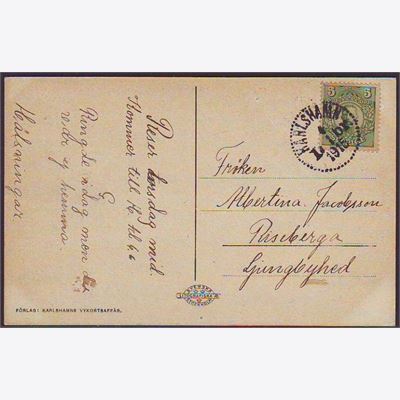 Reser torsdag mid.
Kommer till H. kl. 6,6
G
Ringde i dag men du
var ej hemma.
Hälsningar
5 5
KARLSHAMN
1916
Fröken
Albertina Jacobsson
Riseberga
Ljungbyhed
FÖRLAG: KARLSHAMNS VYKORTSAFFÄR.